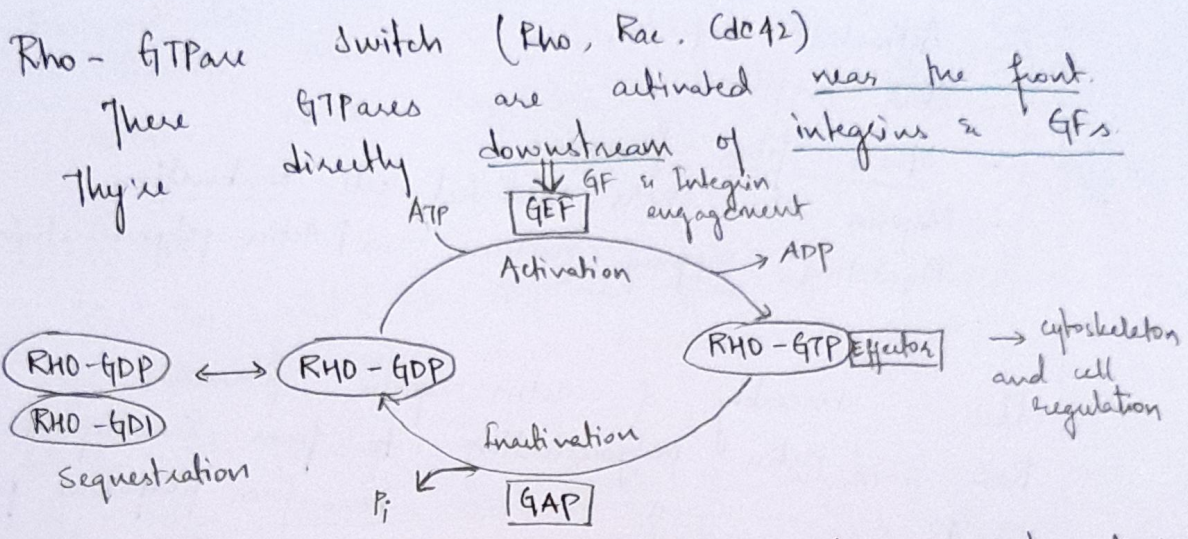 Rho - GTPase switch (Rho, Rac, Cdc42)
These GTPases are activated near the front.
They're directly downstream of integrins & GFs.
GF & Integrin
engagement
ATP
GEF
Activation
ADP
RHO-GDP
RHO-GDI
Sequestration
RHO - GDP
RHO - GTP Effector
→ cytoskeleton
and cell
regulation
Inactivation
Pi
GAP